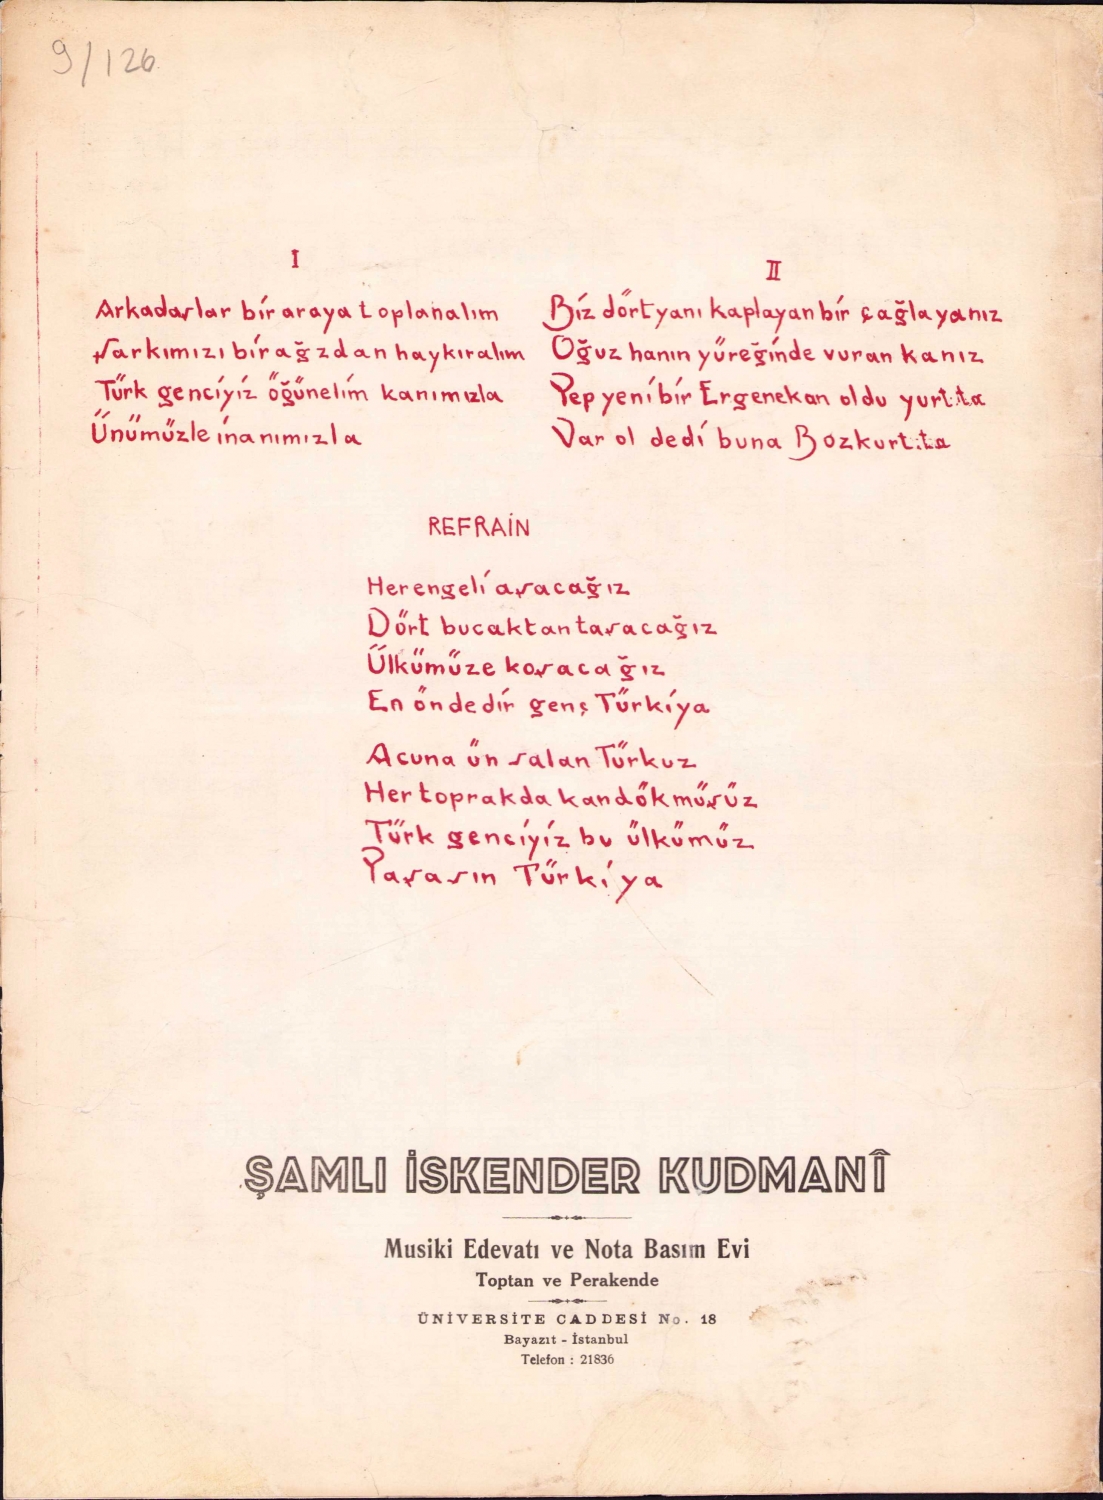 9/126
I
Arkadaşlar bir araya toplanalım
Şarkımızı bir ağızdan haykıralım
Türk genciyiz öğünelim kanımızla
Ünümüzle inanımızla
II
Biz dört yanı kaplayan bir çağlayanız
Oğuz hanın yüreğinde vuran kanız
Yep yeni bir Ergenekon oldu yurtta
Var ol dedi buna Bozkurtta
REFRAİN
Her engeli aşacağız
Dört bucaktan taşacağız
Ülkümüze koşacağız
En öndedir genç Türkiya
Acuna ün salan Türkuz
Her toprakda kan dökmüşüz
Türk genciyiz bu ülkümüz
Yaşasın Türkiya
ŞAMLI İSKENDER KUDMANÎ
Musiki Edevatı ve Nota Basım Evi
Toptan ve Perakende
ÜNİVERSİTE CADDESİ No. 18
Bayazıt - İstanbul
Telefon : 21836